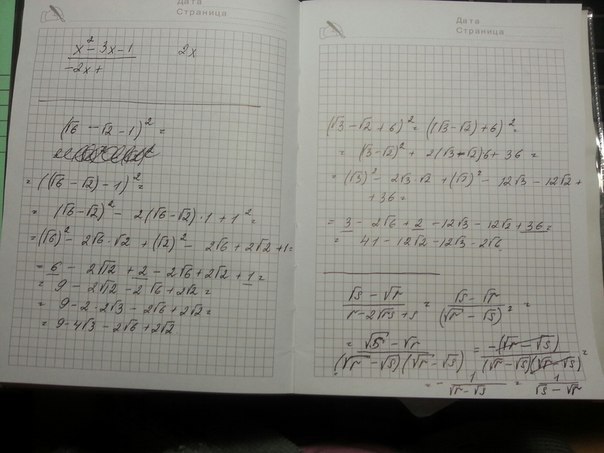 Дата
Страница
x² - 3x - 1     2x
-2x +
(√6 - √2 - 1)² =
= ((√6 - √2) - 1)² =
= (√6 - √2)² - 2(√6 - √2)·1 + 1² =
= (√6)² - 2√6·√2 + (√2)² - 2√6 + 2√2 + 1 =
= 6 - 2√12 + 2 - 2√6 + 2√2 + 1 =
= 9 - 2√12 - 2√6 + 2√2 =
= 9 - 2·2√3 - 2√6 + 2√2 =
= 9 - 4√3 - 2√6 + 2√2
Дата
Страница
(√3 - √2 + 6)² = ((√3 - √2) + 6)² =
= (√3 - √2)² + 2(√3 - √2)6 + 36 =
= (√3)² - 2√3·√2 + (√2)² - 12√3 - 12√2 +
+ 36 =
= 3 - 2√6 + 2 - 12√3 - 12√2 + 36 =
= 41 - 12√2 - 12√3 - 2√6
(√s - √r)/(r - 2√rs + s) = (√s - √r)/(√r - √s)² =
= (√s - √r)/((√r - √s)(√r - √s)) = -(√r - √s)/((√r - √s)(√r - √s))
= -1/(√r - √s) = 1/(√s - √r)